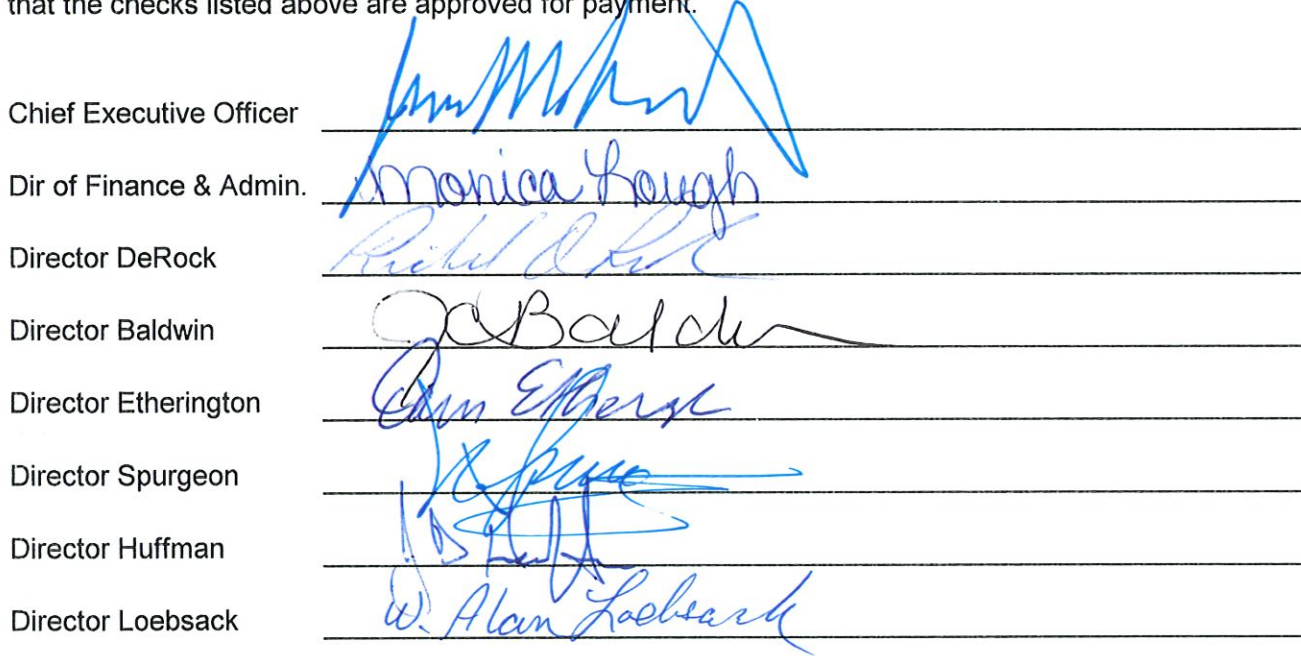 that the checks listed above are approved for payment.
Chief Executive Officer
Dir of Finance & Admin. Monica Lough
Director DeRock
Director Baldwin JCBaldwin
Director Etherington
Director Spurgeon
Director Huffman
Director Loebsack W. Alan Loebsack